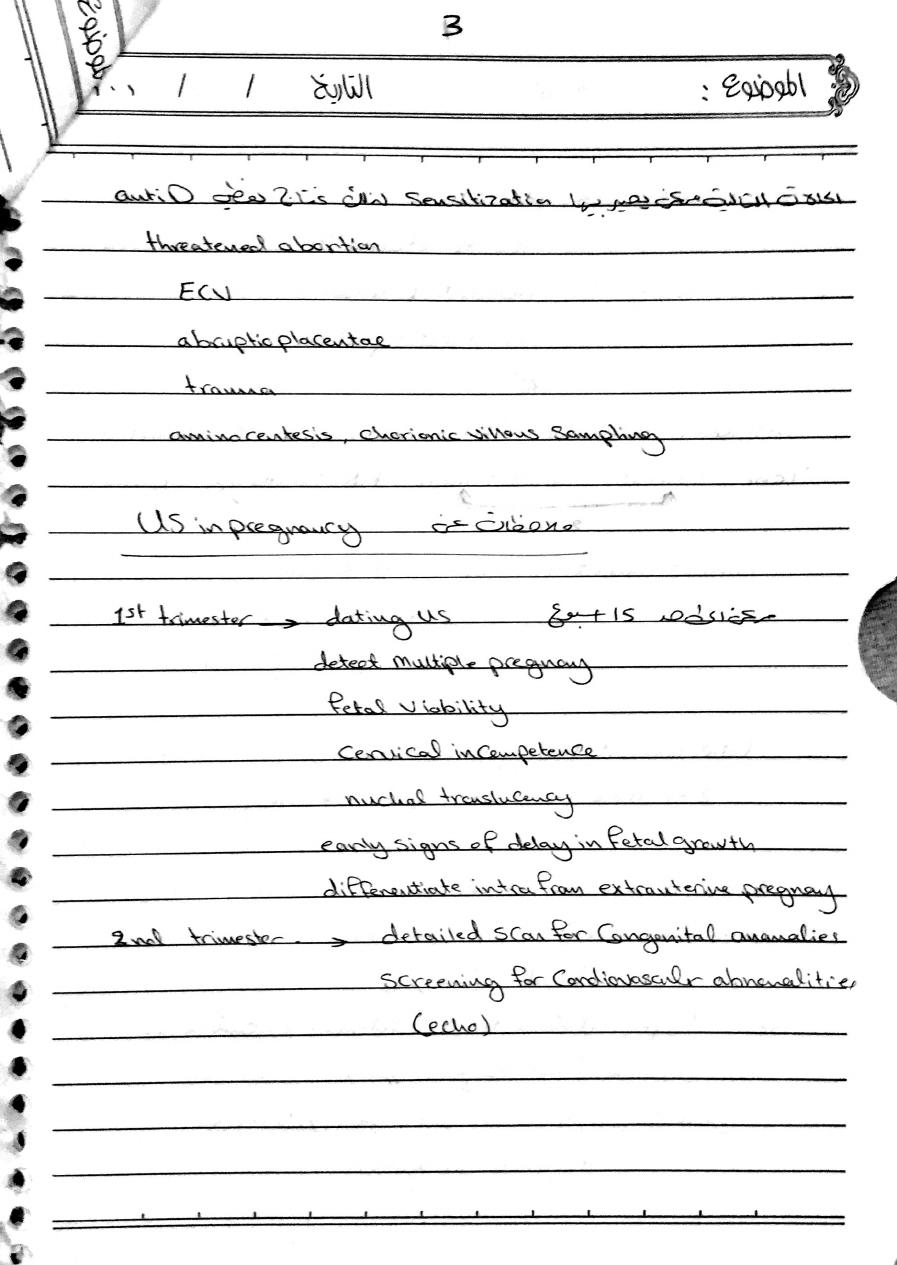 3
الموضوع :
التاريخ / / ٢٠٠
الموضوع
الحالات التالية ممكن يصير بيها sensitization لذلك نحتاج نعطي antiD
threatened abortion
ECV
abruptio placentae
trauma
aminocentesis, chorionic villous sampling
ملاحظات عن US in pregnancy
1st trimester → dating US 15 + اسبوع
detect multiple pregnancy
fetal viability
cervical incompetence
nuchal translucency
early signs of delay in fetal growth
differentiate intra from extrauterine pregnancy
2nd trimester → detailed scan for congenital anomalies
screening for cardiovasculr abnomalities
(echo)